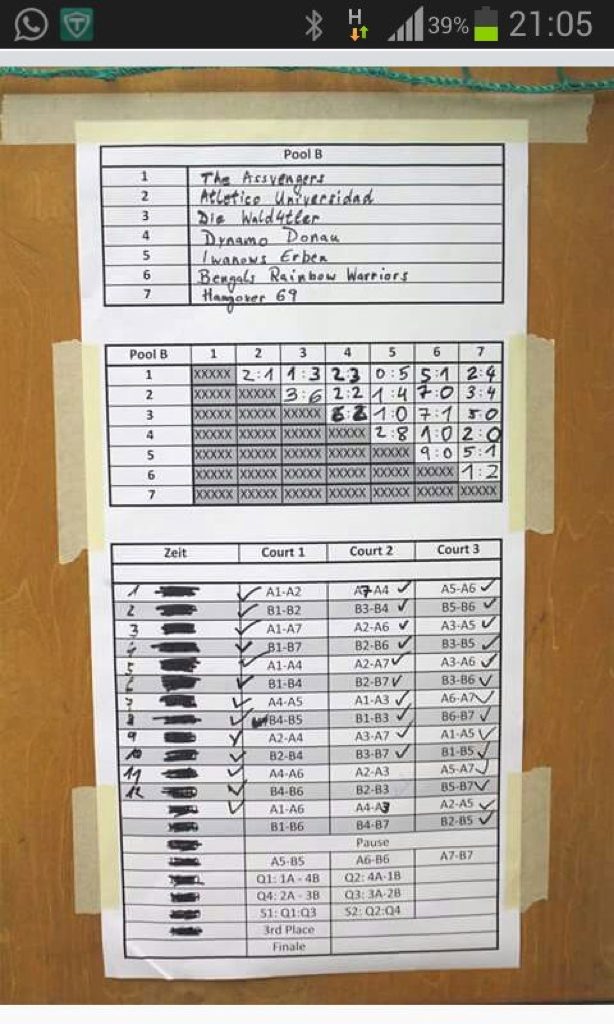 H 39% 21:05
Pool B
1 The Assvengers
2 Atletico Universidad
3 Die Wald4tler
4 Dynamo Donau
5 Iwanows Erben
6 Bengals Rainbow Warriors
7 Hangover 69
Pool B 1 2 3 4 5 6 7
1 XXXXX 2:1 1:3 2:3 0:5 5:1 2:4
2 XXXXX XXXXX 3:6 2:2 1:4 7:0 3:4
3 XXXXX XXXXX XXXXX 1:0 7:1 5:0
4 XXXXX XXXXX XXXXX XXXXX 2:8 1:0 2:0
5 XXXXX XXXXX XXXXX XXXXX XXXXX 9:0 5:1
6 XXXXX XXXXX XXXXX XXXXX XXXXX XXXXX 1:2
7 XXXXX XXXXX XXXXX XXXXX XXXXX XXXXX XXXXX
Zeit Court 1 Court 2 Court 3
1 A1-A2 A7-A4 A5-A6
2 B1-B2 B3-B4 B5-B6
3 A1-A7 A2-A6 A3-A5
4 B1-B7 B2-B6 B3-B5
5 A1-A4 A2-A7 A3-A6
6 B1-B4 B2-B7 B3-B6
7 A4-A5 A1-A3 A6-A7
8 B4-B5 B1-B3 B6-B7
9 A2-A4 A3-A7 A1-A5
10 B2-B4 B3-B7 B1-B5
11 A4-A6 A2-A3 A5-A7
12 B4-B6 B2-B3 B5-B7
A1-A6 A4-A3 A2-A5
B1-B6 B4-B7 B2-B5
Pause
A5-B5 A6-B6 A7-B7
Q1: 1A - 4B Q2: 4A-1B
Q4: 2A - 3B Q3: 3A-2B
S1: Q1:Q3 S2: Q2:Q4
3rd Place
Finale